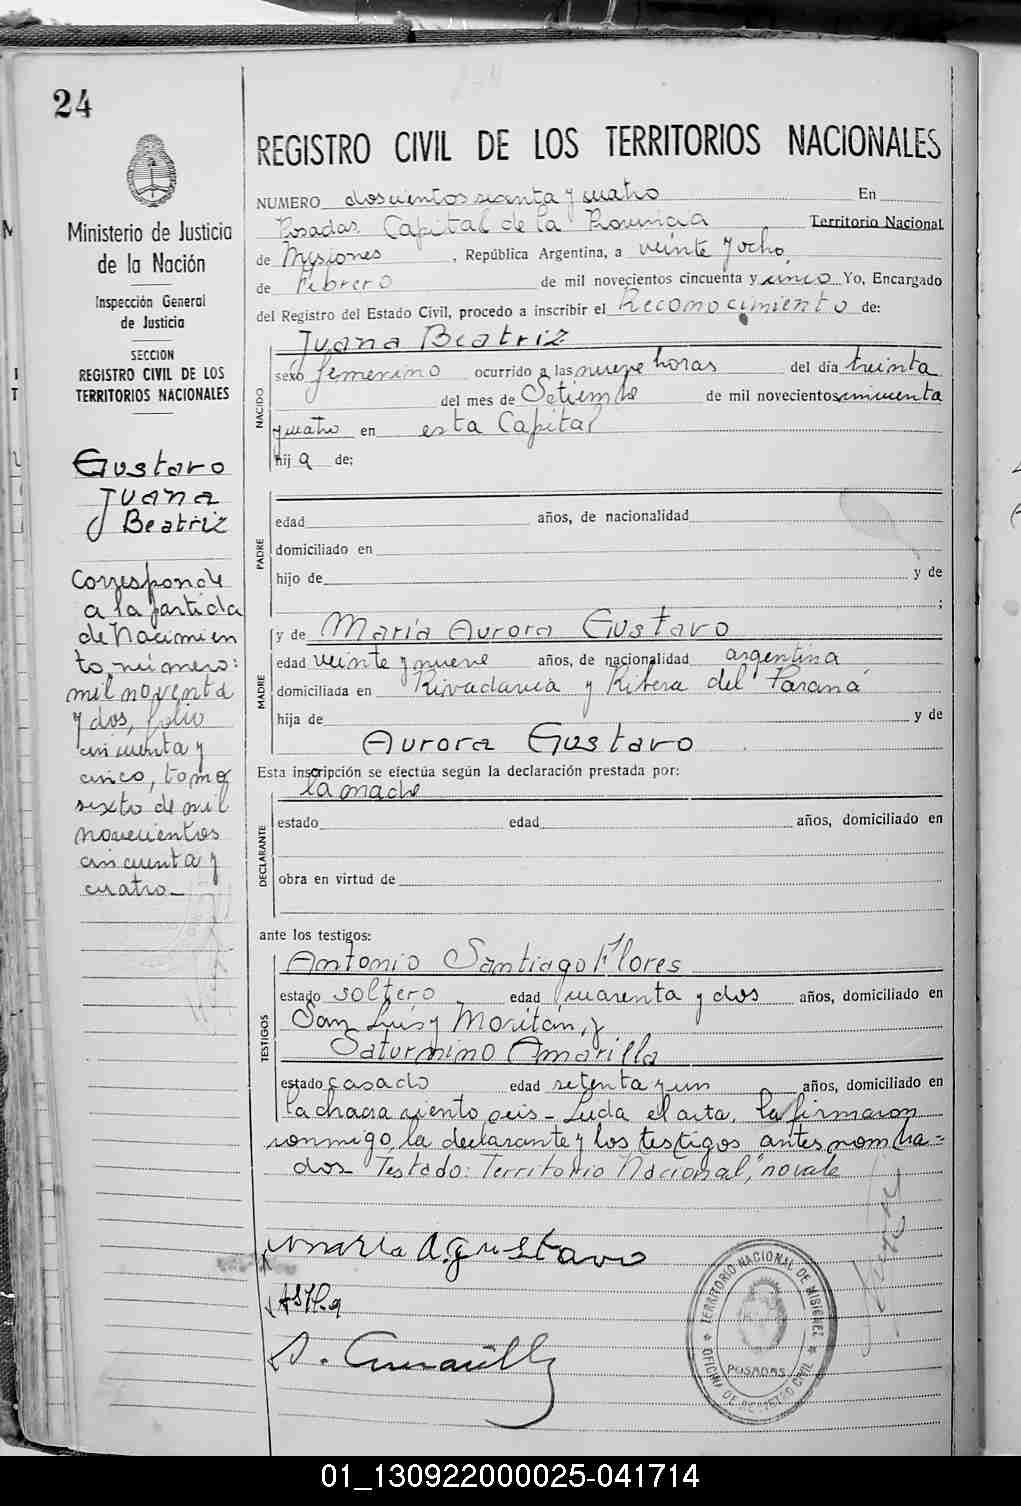 24
REGISTRO CIVIL DE LOS TERRITORIOS NACIONALES
Ministerio de Justicia
de la Nación
Inspección General
de Justicia
SECCION
REGISTRO CIVIL DE LOS
TERRITORIOS NACIONALES
Gustavo
Juana
Beatriz
Corresponde
a la partida
de Nacimien
to, número:
mil noventa
y dos, folio
cincuenta y
cinco, tomo
sexto de mil
novecientos
cincuenta y
cuatro
NUMERO doscientos sesenta y cuatro En
Posadas Capital de la Provincia Territorio Nacional
de Misiones, República Argentina, a veinte y ocho,
de Febrero de mil novecientos cincuenta y cinco Yo, Encargado
del Registro del Estado Civil, procedo a inscribir el Reconocimiento de:
Juana Beatriz
NACIDO
sexo femenino ocurrido a las nueve horas del día treinta
del mes de Setiembre de mil novecientos cincuenta
y cuatro en esta Capital
hija de;
PADRE
edad años, de nacionalidad
domiciliado en
hijo de y de
;
MADRE
y de María Aurora Gustavo
edad veinte y nueve años, de nacionalidad argentina
domiciliada en Rivadavia y Ribera del Paraná
hija de y de
Aurora Gustavo
Esta inscripción se efectúa según la declaración prestada por:
la madre
DECLARANTE
estado edad años, domiciliado en
obra en virtud de
ante los testigos:
TESTIGOS
Antonio Santiago Flores
estado soltero edad cuarenta y dos años, domiciliado en
San Luis y Moritán, y
Saturnino Amarilla
estado casado edad setenta y un años, domiciliado en
la chacra ciento seis - Leida el acta, la firmaron
conmigo, la declarante y los testigos antes nombra=
dos Testado: Territorio Nacional, "no vale
Maria A. gustavo
S. Amarilla
TERRITORIO NACIONAL DE MISIONES
POSADAS
OFICINA DE REGISTRO CIVIL
01_130922000025-041714